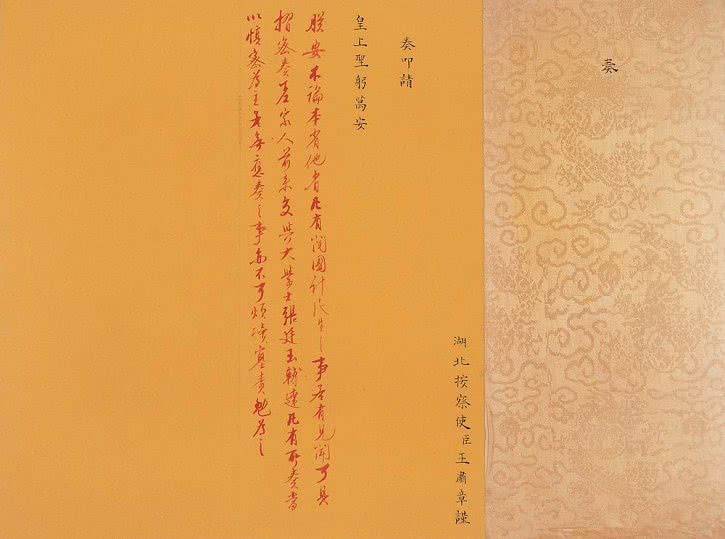 奏
湖北按察使臣王肅章謹
奏叩請
皇上聖躬萬安
朕安不論本省他省凡有關國計民生之事若有見聞可具
摺密奏差家人前来交與大學士張廷玉轉達凡有所奏當
以慎密為主若無應奏之事亦不可煩瀆塞責勉為之